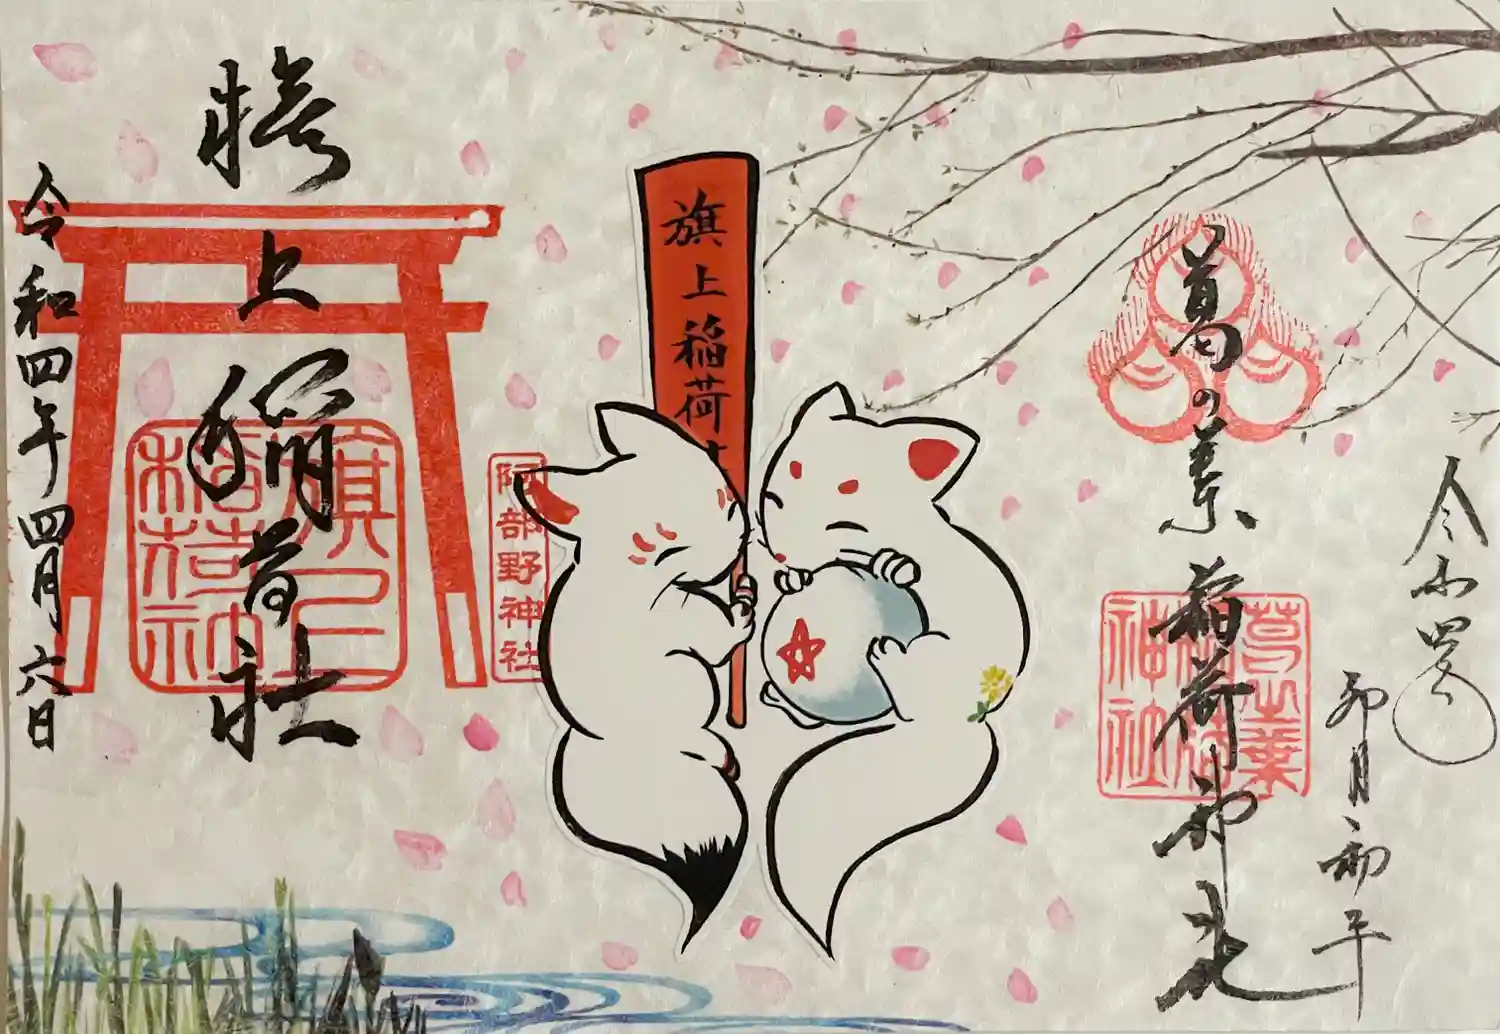 令和四年
卯月初午
葛の葉稲荷神社
葛之葉
稲荷
神社
旗上稲荷
阿部野神社
旗上稲荷社
旗上
稲荷社
令和四年四月六日